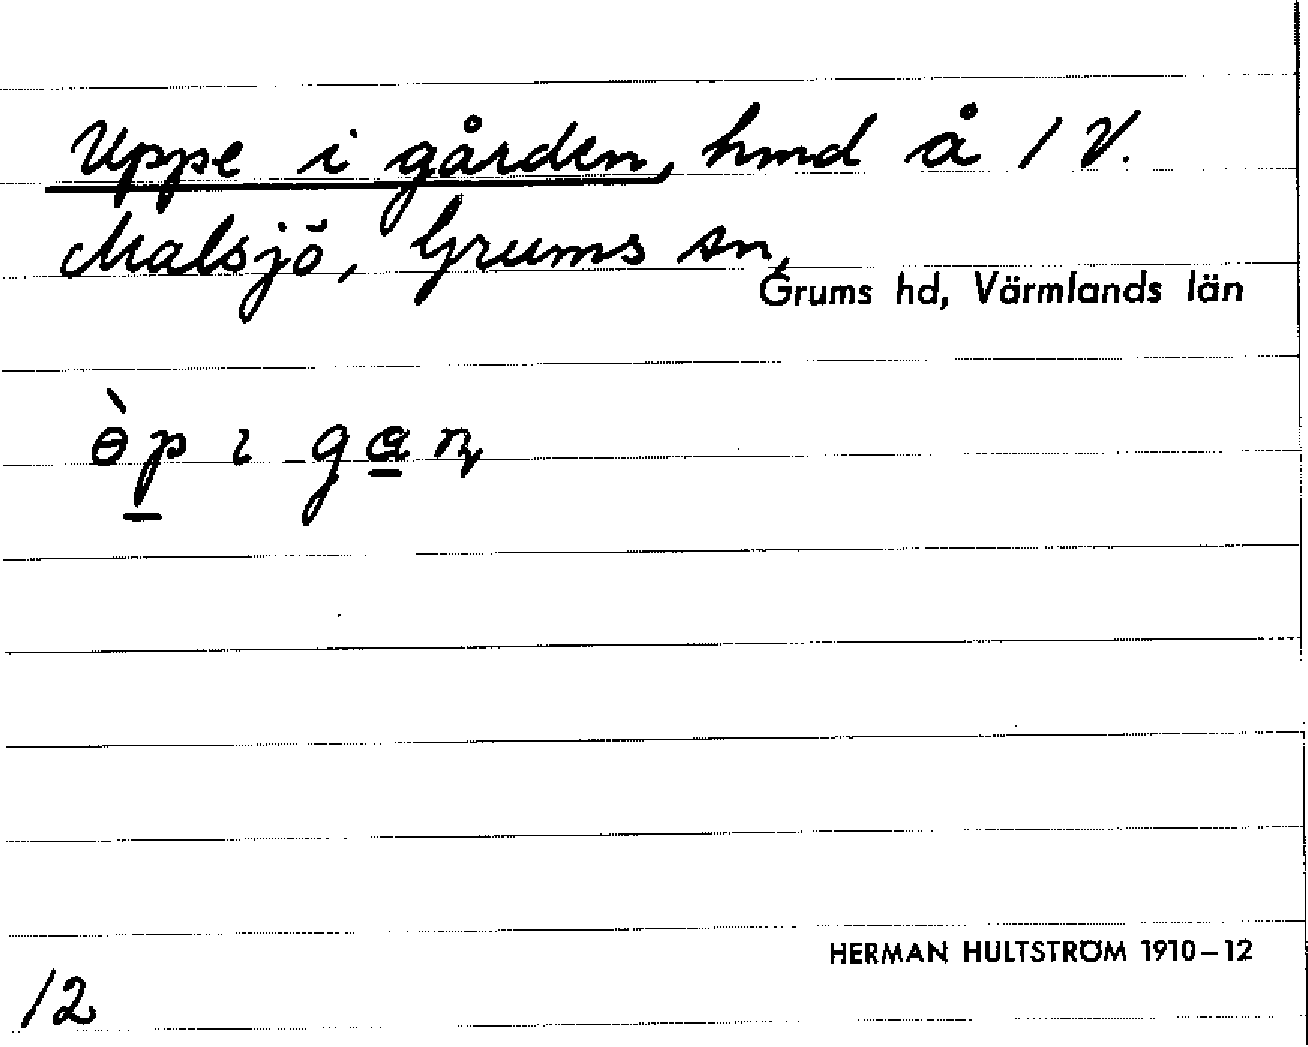 Uppe i gården, hmd å 1 V.
Malsjö, Grums sn,
Grums hd, Värmlands län
ɵ̀p̲ ɿ ga̲ɳ
HERMAN HULTSTRÖM 1910–12
12